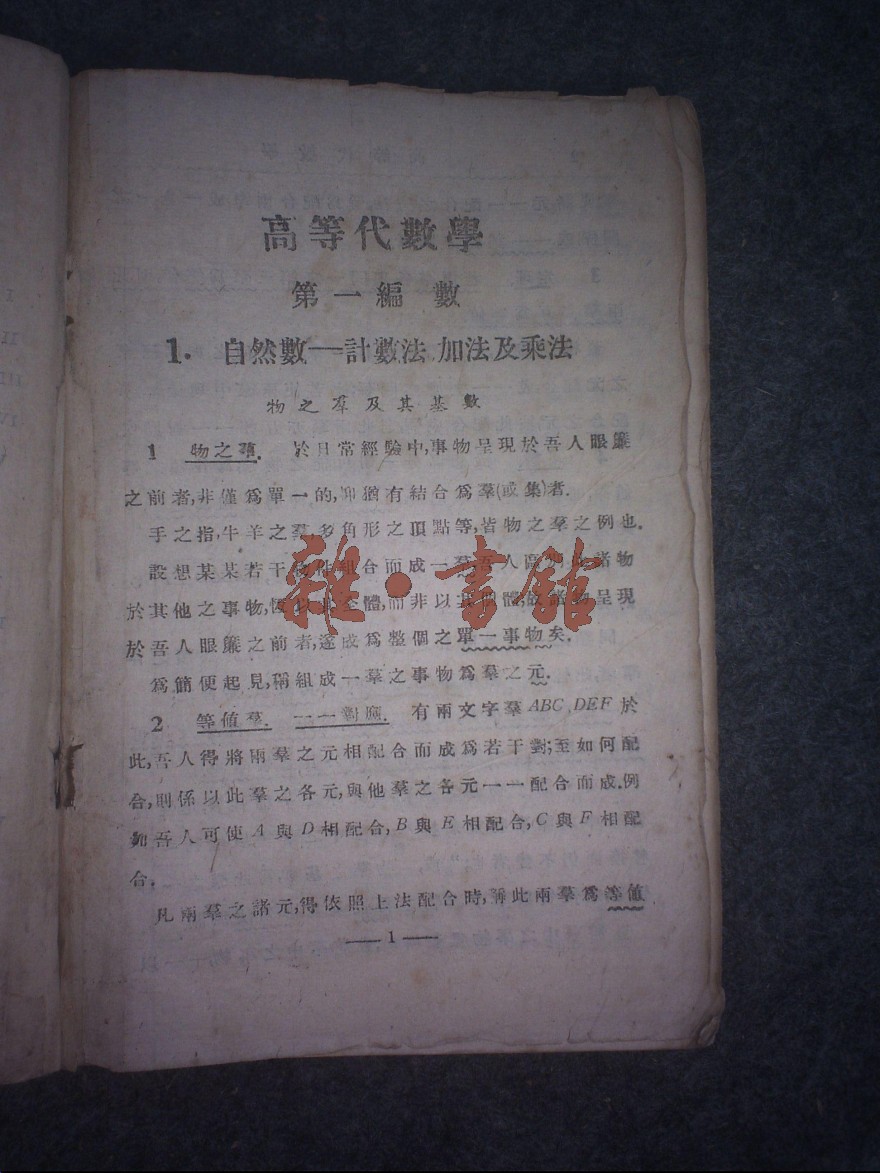 高等代數學
第一編 數
1. 自然數—計數法 加法及乘法
物之羣及其基數
1 物之羣. 於日常經驗中,事物呈現於吾人眼簾
之前者,非僅爲單一的,抑猶有結合爲羣(或集)者.
手之指,牛羊之羣,多角形之頂點等,皆物之羣之例也.
設想某某若干物件組合而成一羣,吾人 諸物
於其他之事物,恆以其全體,而非以其 體,故諸物呈現
於吾人眼簾之前者,遂成爲整個之單一事物矣.
爲簡便起見,稱組成一羣之事物爲羣之元.
2 等値羣. 一一對應. 有兩文字羣ABC, DEF於
此,吾人得將兩羣之元相配合而成爲若干對;至如何配
合,則係以此羣之各元,與他羣之各元一一配合而成.例
如吾人可使A與D相配合,B與E相配合,C與F相配
合.
凡兩羣之諸元,得依照上法配合時,稱此兩羣爲等値
— 1 —
雜·書館